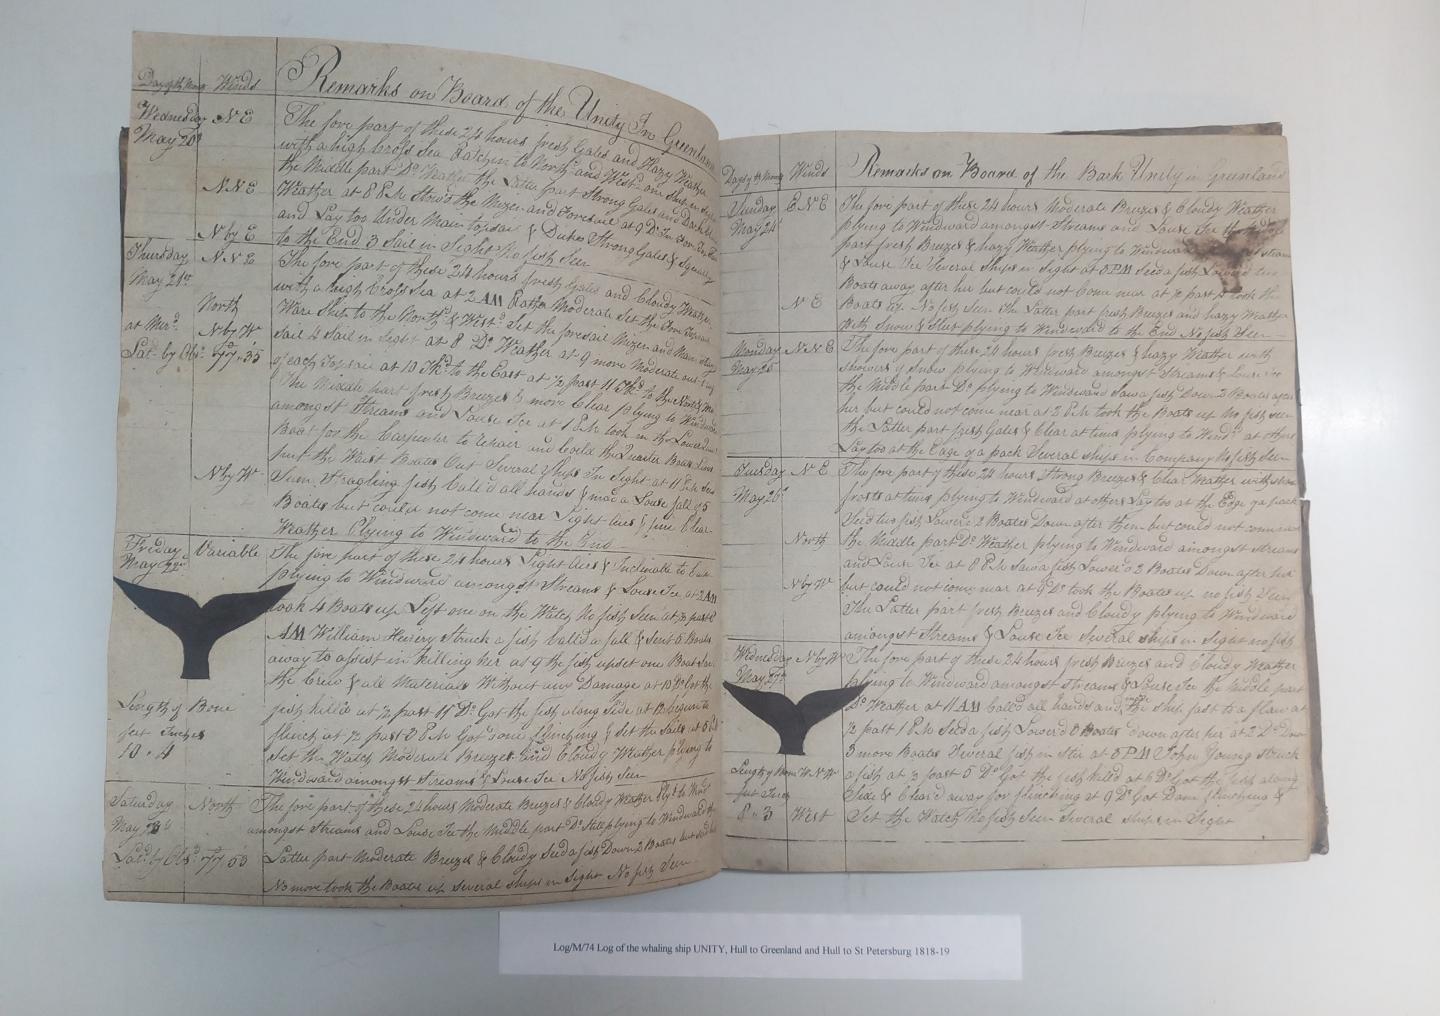 Days of the Mon Winds Remarks on Board of the Unity In Greenland
Wednesday N E The fore part of these 24 hours fresh Gales and Hazy Weather
May 20 with a high Cross Sea Ratchin to North and West one Ship in Sight
the Middle part Do Weather the Latter part Strong Gales and Dark
N N E Weather at 8 P.M Stow'd the Mizen and Foresail at 9 Do
and Lay too Under Main topsail & Ditto Strong Gales & Squally
N by E to the End 3 Sail in Sight No fish Seen
Thursday N N E The fore part of these 24 hours fresh Gales and Cloudy Weather
May 21st with a high Cross Sea at 2 AM Rather Moderate Set the
North Ware Ship to the North & West Set the foresail Mizen and Main
at Merd N by W Sail 4 Sail in Sight at 8 Do Weather at 9 more Moderate out
Lat by Obs 77,,35 of each Topsail at 10 Tkd to the East at ½ past 11 Tkd to the North & West
The Middle part fresh Breezes & more Clear plying to Windward
amongst Streams and Louse Ice at 1 P.M took in the Lower
Boat for the Carpenter to Repair and Coild the Quarter Boats Lines
put the Waist Boats Out Several Ships In Sight at 11 P.M
N by W Sum Stragling fish Call'd all hands & mad a Louse fall of 5
Boates but could not come near Light Aies & fine Clear
Weather Plying to Windward to the End
Friday Variable The fore part of these 24 hours Light Aies & Inclinable to
May 22nd plying to Windward amongst Streams & Louse Ice at 2 AM
took 4 Boats up Left one on the Watch No fish Seen at ½ past 8
AM William Hewery Struck a fish Call'd a fall & Sent 5 Boats
away to assist in killing her at 9 the fish upset one Boat
the Crew & all Materials Without any Damage at 10 Do Got the
Length of Bone fish kill'd at ½ past 11 Do Got the fish along Side at 12 begun to
feet Inches flinch at ½ past 2 P.M Got done flinching & Set the Sails at 5
10 ,, 4 Set the Watch Moderate Breezes and Cloudy Weather plying to
Windward amongst Streams & Louse Ice No fish Seen
Saturday North The fore part of these 24 hours Moderate Breezes & Cloudy Weather Plyg to Wind
May 23d amongst Streams and Louse Ice the Middle part Do Still plying to Windward the
Latd by Obsd 77,,53 Latter part Moderate Breezes & Cloudy Seed a fish Down 2 Boates but
No more took the Boates up Several ships in Sight No fish Seen
Days of the Month Winds Remarks on Board of the Bark Unity in Greenland
Sunday E N E The fore part of these 24 hours Moderate Breezes & Cloudy Weather
May 24 plying to Windward amongst Streams and Louse Ice the
part fresh Breezes & hazy Weather plying to Windward
& Louse Ice Several Ships in Sight at 5 PM Seed a fish Lowered two
Boats away after her but could not Come near at ½ past took the
N E Boats up No fish Seen The Latter part fresh Breezes and hazy Weather
With Snow & Sleet plying to Windward to the End No fish Seen
Monday N N E The fore part of these 24 hours fresh Breezes & hazy Weather with
May 25 showers of Snow plying to Windward amongst Streams & Louse Ice
the Middle part Do plying to Windward Saw a fish Down 2 Boates after
her but could not come near at 2 P.M took the Boats up No fish seen
the Latter part fresh Gales & Clear at times plying to Windd at others
Lay too at the Eage of a pack Several ships in Company No fish Seen
Tuesday N E The fore part of these 24 hours Strong Breezes & Clear Weather with
May 26 frosts at times plying to Windward at others Lay too at the Edge of a pack
Seed two fish Lower'd 2 Boates Down after them but could not come near
North the Middle part Do Weather plying to Windward amongst Streams
and Louse Ice at 8 P.M Saw a fish Lower'd 2 Boates Down after her
N by W but could not come near at 9 Do took the Boates up no fish Seen
The Latter part fresh Breezes and Cloudy plying to Windward
amongst Streams & Louse Ice Several ships in Sight no fish
Wednesday N by W The fore part of these 24 hours fresh Breezes and Cloudy Weather
May 27th plying to Windward amongst Streams & Louse Ice the Middle part
Do Weather at 11 AM Call'd all hands and the ship fast to a flaw at
½ past 1 P.M Seed a fish Lower'd Boates down after her at 2 Do Down
3 more Boates Several fish in Stir at 5 PM John Young Struck
Length of Bone W N W a fish at 3 past 5 Do Got the fish killed at 6 Do Got the fish along
fut Inches Side & Clear'd away for flinching at 9 Do Got Done flinching &
8 ,, 3 West Set the Watch No fish Seen Several ships in Sight
Log/M/74 Log of the whaling ship UNITY, Hull to Greenland and Hull to St Petersburg 1818-19